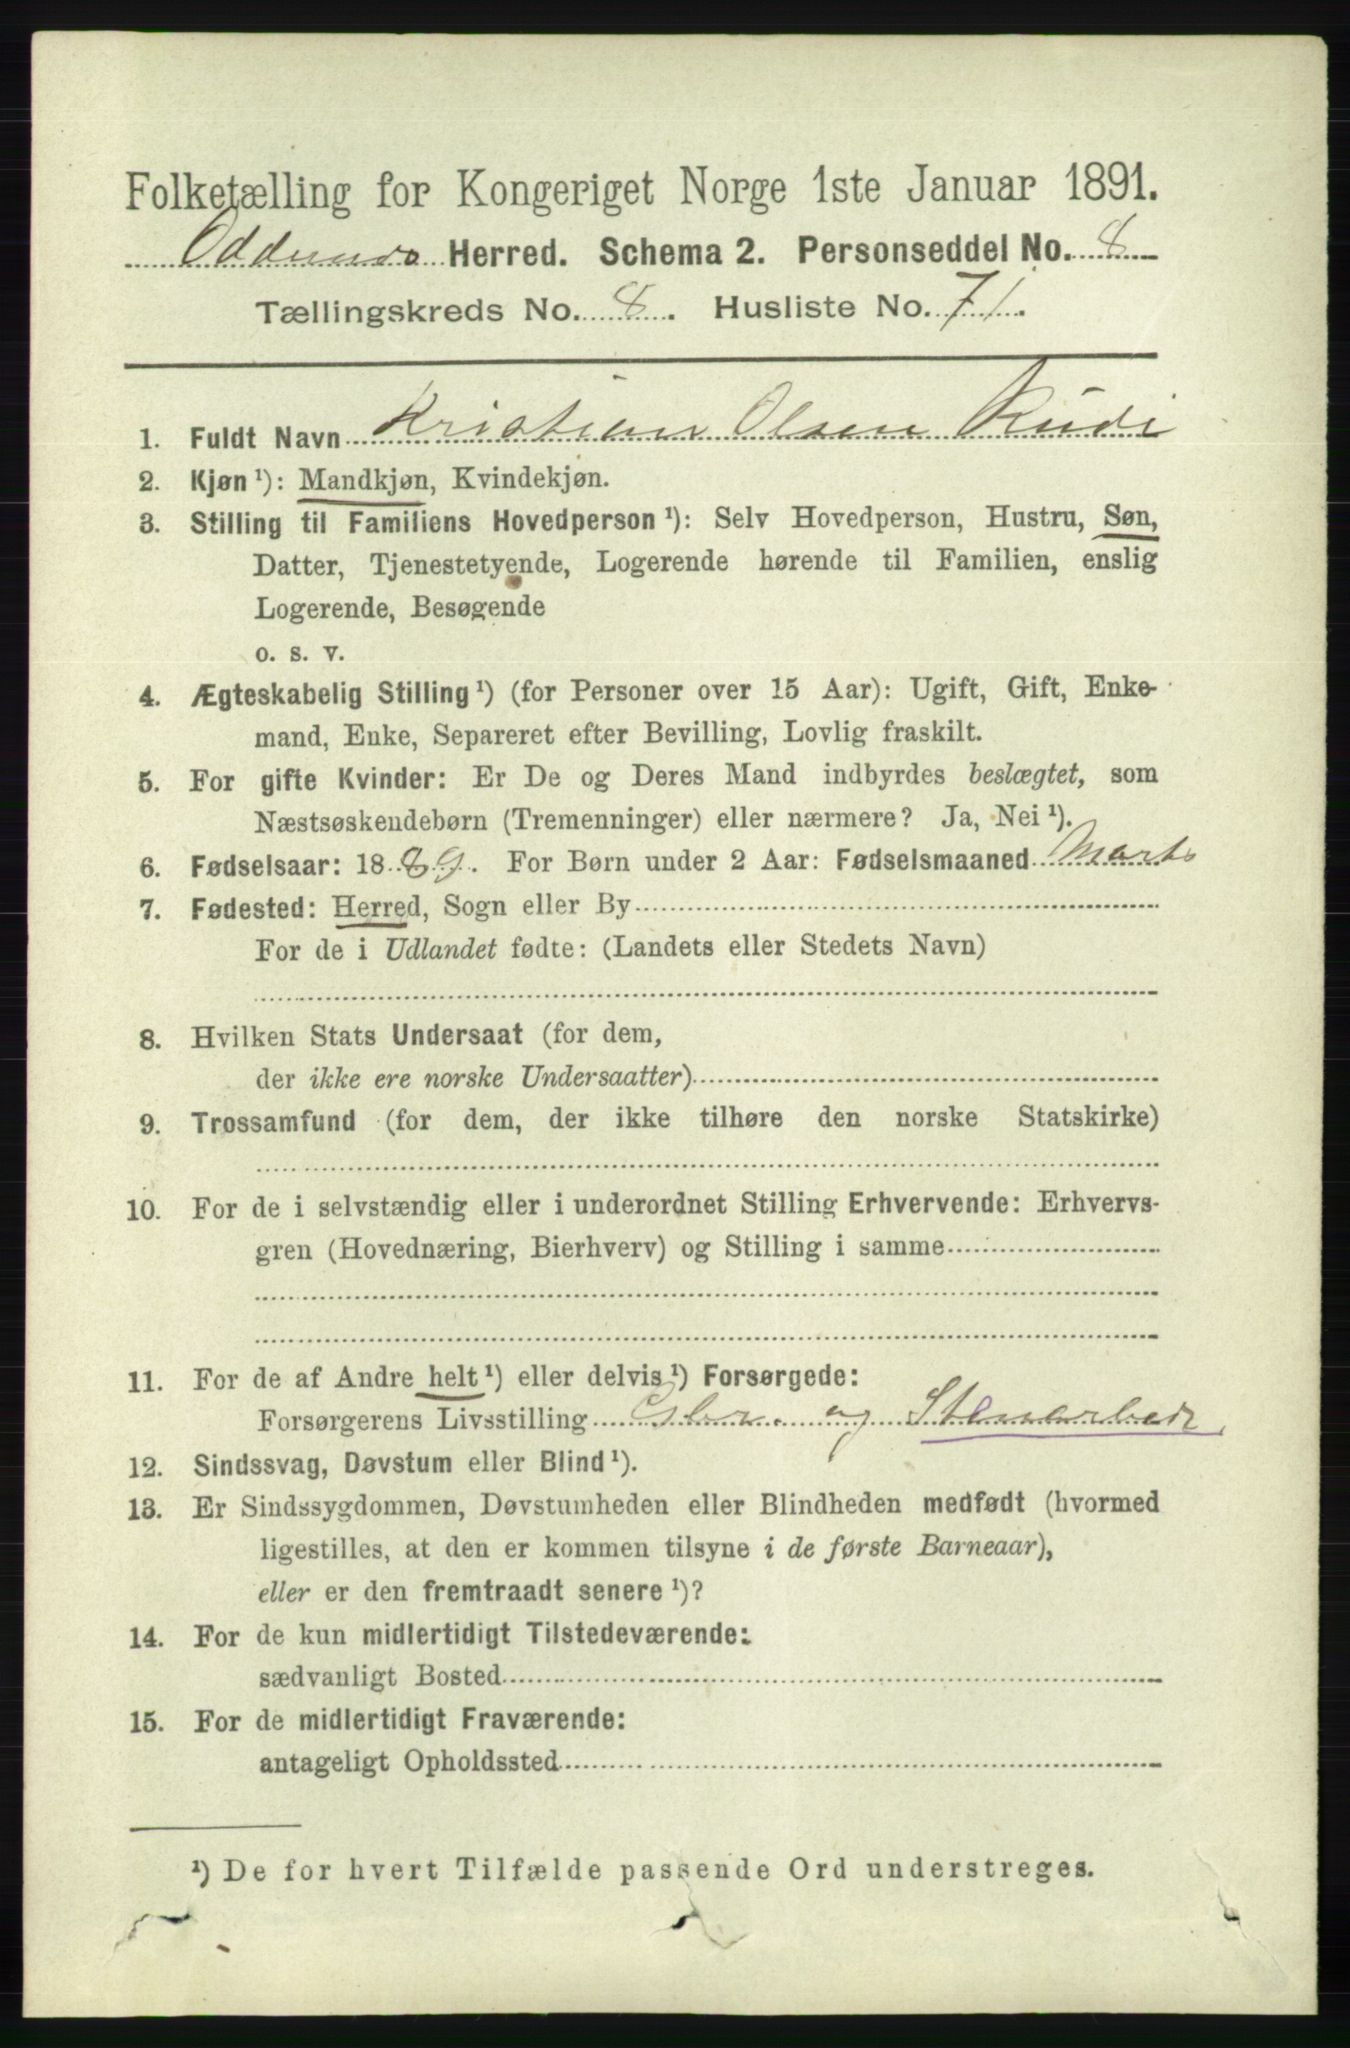 Folketælling for Kongeriget Norge 1ste Januar 1891.
Oddernes Herred. Schema 2. Personseddel No. 8
Tællingskreds No. 8. Husliste No. 71.
1. Fuldt Navn Kristian Olsen Rudi
2. Kjøn ¹): Mandkjøn, Kvindekjøn.
3. Stilling til Familiens Hovedperson ¹): Selv Hovedperson, Hustru, Søn,
Datter, Tjenestetyende, Logerende hørende til Familien, enslig
Logerende, Besøgende
o. s. v.
4. Ægteskabelig Stilling ¹) (for Personer over 15 Aar): Ugift, Gift, Enke-
mand, Enke, Separeret efter Bevilling, Lovlig fraskilt.
5. For gifte Kvinder: Er De og Deres Mand indbyrdes beslægtet, som
Næstsøskendebørn (Tremenninger) eller nærmere? Ja, Nei ¹).
6. Fødselsaar: 1889. For Børn under 2 Aar: Fødselsmaaned Marts
7. Fødested: Herred, Sogn eller By
For de i Udlandet fødte: (Landets eller Stedets Navn)
8. Hvilken Stats Undersaat (for dem,
der ikke ere norske Undersaatter)
9. Trossamfund (for dem, der ikke tilhøre den norske Statskirke)
10. For de i selvstændig eller i underordnet Stilling Erhvervende: Erhvervs-
gren (Hovednæring, Bierhverv) og Stilling i samme
11. For de af Andre helt ¹) eller delvis ¹) Forsørgede:
Forsørgerens Livsstilling Gbr. og Stenarbedr
12. Sindssvag, Døvstum eller Blind ¹).
13. Er Sindssygdommen, Døvstumheden eller Blindheden medfødt (hvormed
ligestilles, at den er kommen tilsyne i de første Barneaar),
eller er den fremtraadt senere ¹)?
14. For de kun midlertidigt Tilstedeværende:
sædvanligt Bosted
15. For de midlertidigt Fraværende:
antageligt Opholdssted
¹) De for hvert Tilfælde passende Ord understreges.